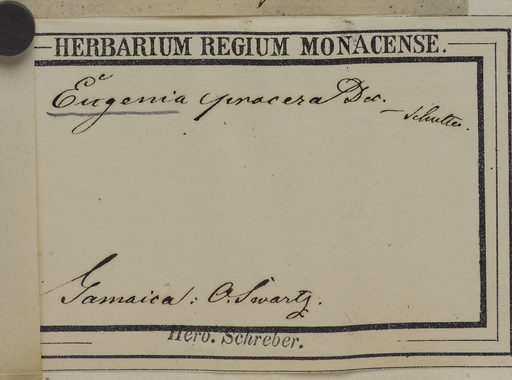 HERBARIUM REGIUM MONACENSE.
Eugenia procera Dec.
Gamaica: O. Swartz.
Herb. Schreber.